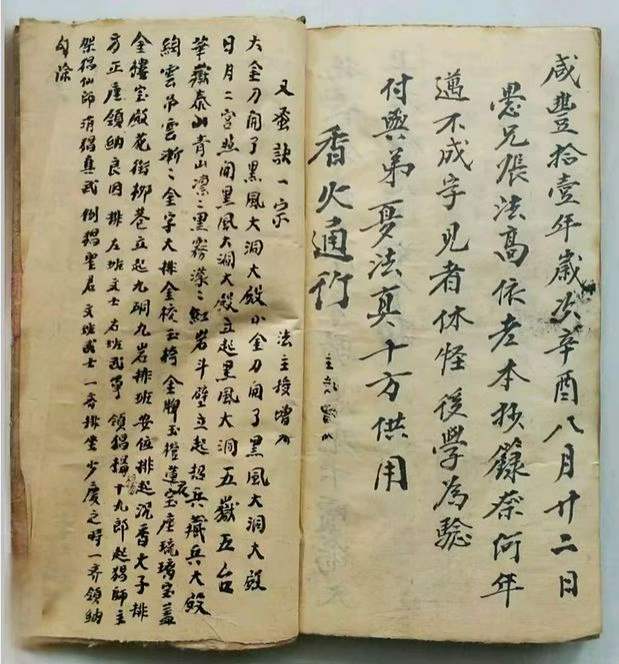 咸豐拾壹年歲次辛酉八月廿二日
愚兄張法高依老本抄錄奈何年
邁不成字見者休怪後學為驗
付與弟夏法真十方供用
香火通行
又蚕訣一宗 法主授增
大金刀開了黑風大洞大殿小金刀開了黑風大洞大殿
日月二宮照開黑風大洞大殿立起黑風大洞五嶽五台
華嶽泰山青山凜〻黑霧濛〻紅岩斗壁立起招兵藏兵大殿
絢雲吊雲漸〻金字大排金校玉椅金牌玉橙蓮花宝座琉璃宝盖
金樓宝殿花街柳巷立起九硐九岩排班安位排起沉香大子排
方正座領納良因排左班文士右班武軍領猖十九郎起猖師主
傑猖仙師消猖真武倒猖聖君文班武士一斉排坐少慶之時一齐領納
勾除